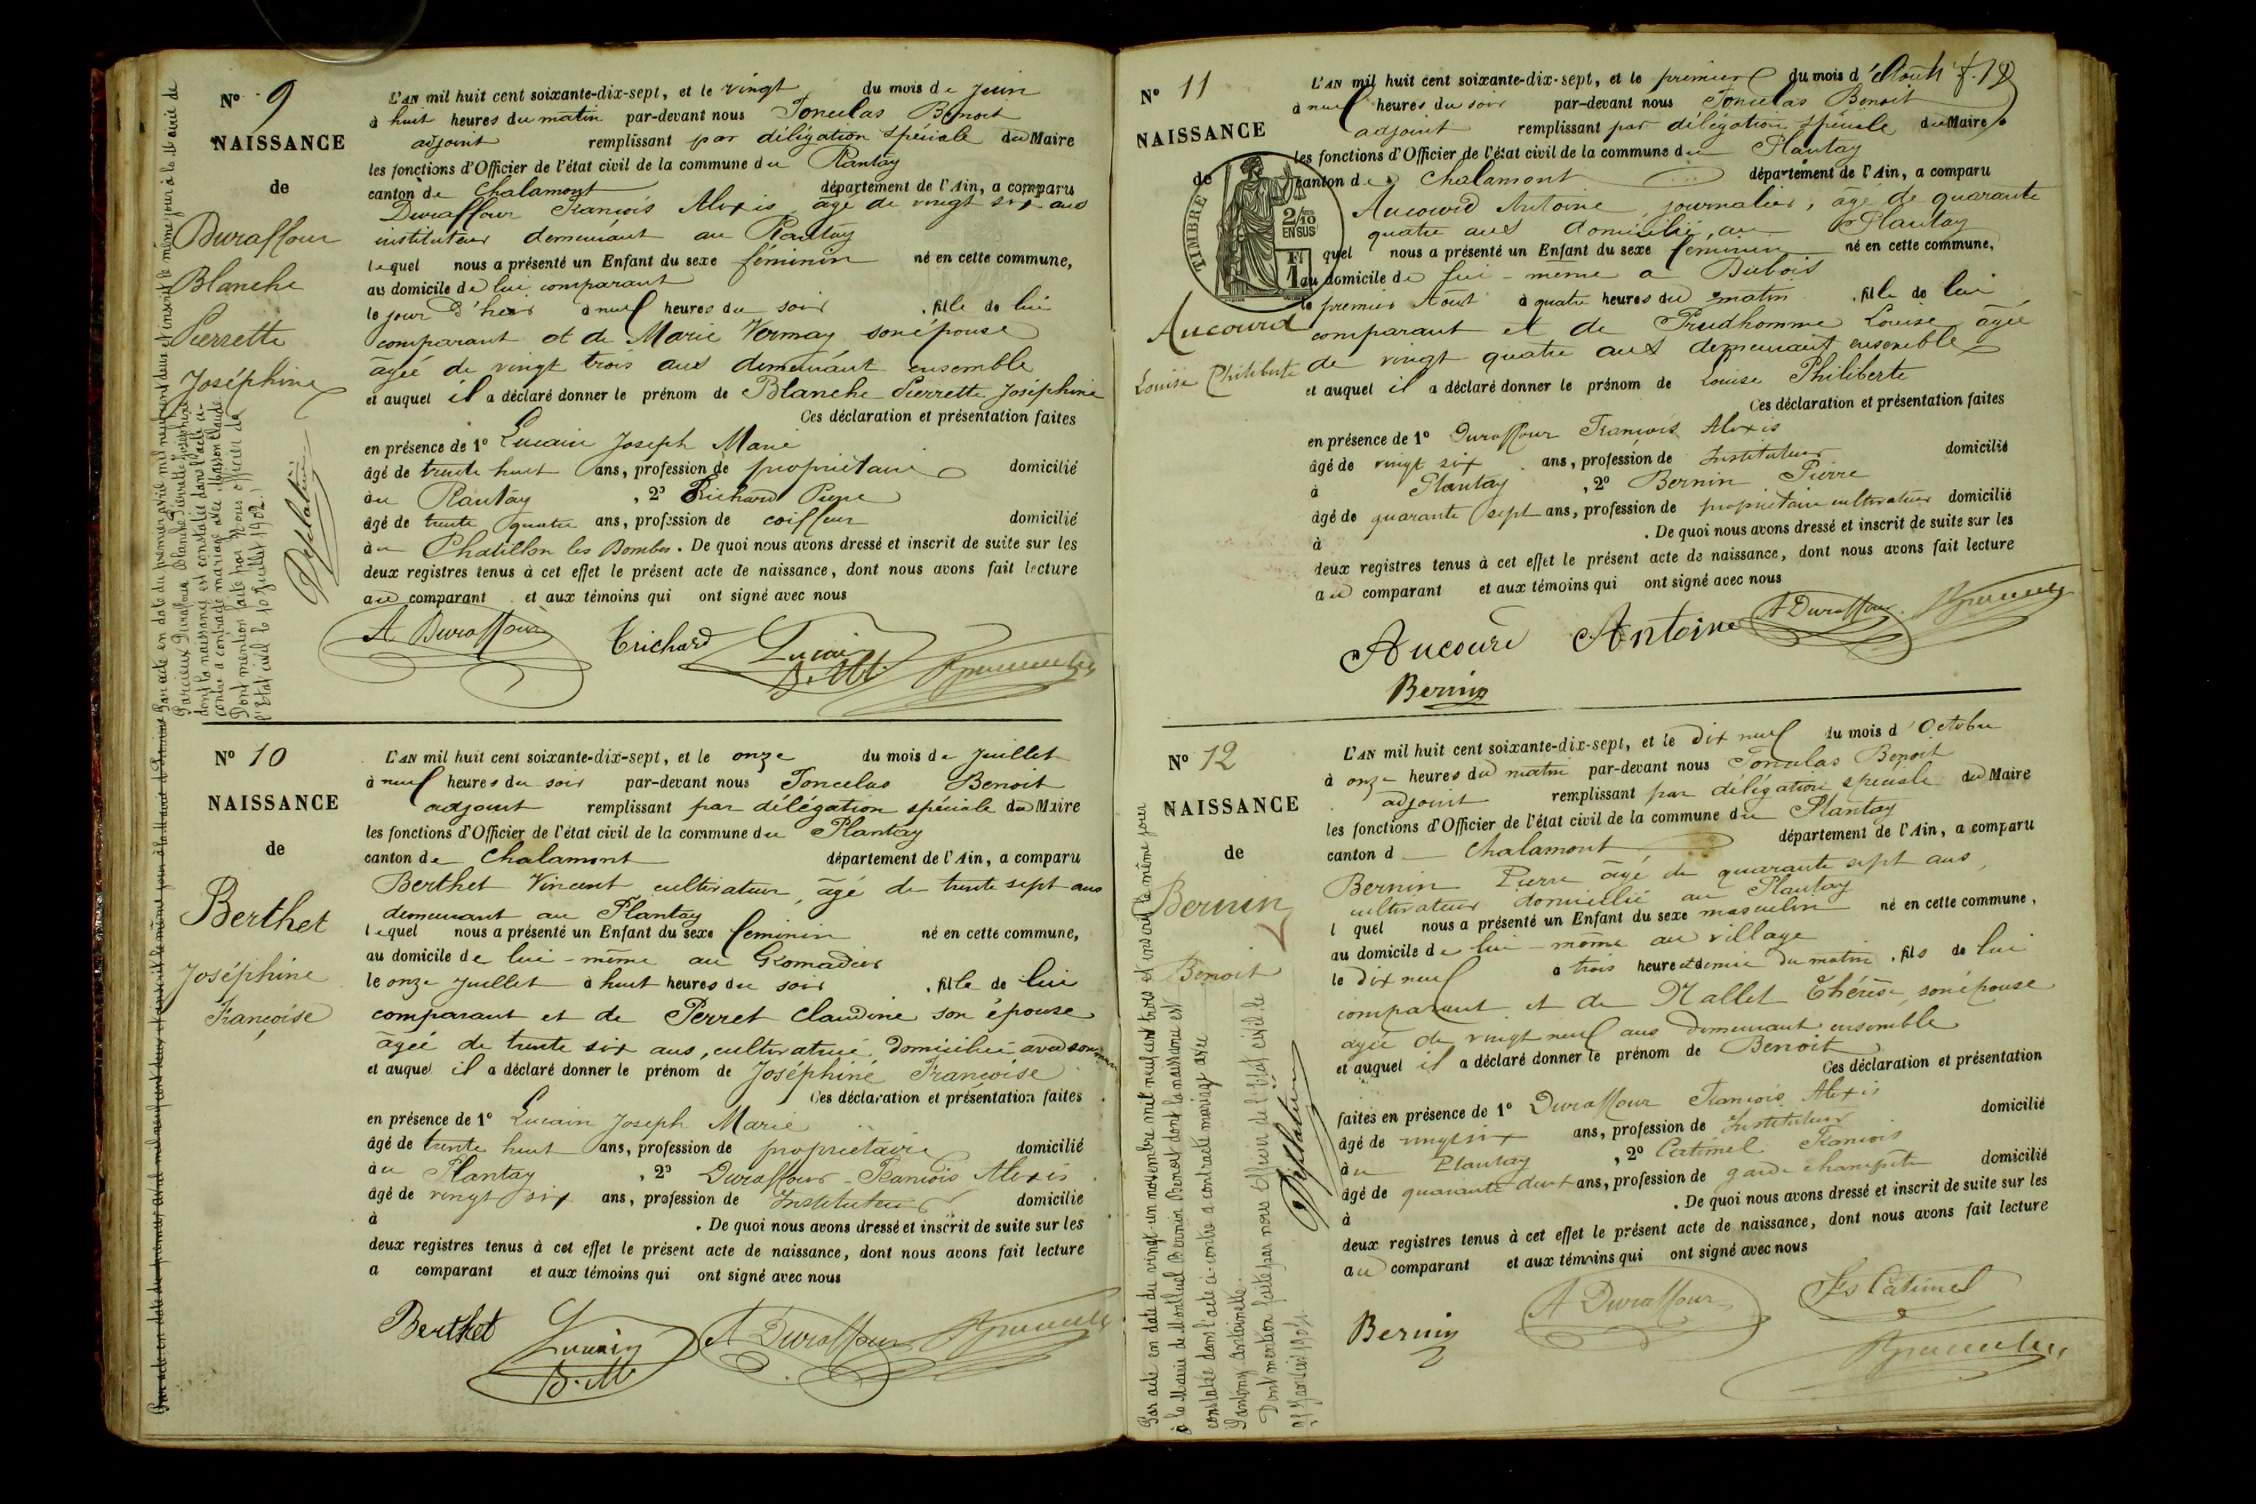 Nº 9
NAISSANCE
de
Duraffour
Blanche
Pierrette
Joséphine
L'AN mil huit cent soixante-dix-sept, et le vingt du mois de Juin
à huit heures du matin par-devant nous Benoit
adjoint remplissant par délégation spéciale du Maire
les fonctions d'Officier de l'état civil de la commune du Plantay
canton de Chalamont département de l'Ain, a comparu
Duraffour François Alexis, âgé de vingt six ans
instituteur demeurant au Plantay
lequel nous a présenté un Enfant du sexe féminin né en cette commune,
au domicile de lui comparant
le jour d'hier à neuf heures du soir, fille de lui
comparant et de Marie Vermay son épouse
âgée de vingt trois ans demeurant ensemble
et auquel il a déclaré donner le prénom de Blanche Pierrette Joséphine
Ces déclaration et présentation faites
en présence de 1º Lucain Joseph Marie
âgé de trente huit ans, profession de propriétaire domicilié
au Plantay, 2º Trichard Pierre
âgé de trente quatre ans, profession de coiffeur domicilié
à Chatillon les Dombes. De quoi nous avons dressé et inscrit de suite sur les
deux registres tenus à cet effet le présent acte de naissance, dont nous avons fait lecture
au comparant et aux témoins qui ont signé avec nous
A Duraffour Trichard Lucain
Dont mention faite par Nous officier de
l'Etat civil le 10 Juillet 1902.
Nº 10
NAISSANCE
de
Berthet
Joséphine
Françoise
L'AN mil huit cent soixante-dix-sept, et le onze du mois de Juillet
à neuf heures du soir par-devant nous Benoit
adjoint remplissant par délégation spéciale du Maire
les fonctions d'Officier de l'état civil de la commune du Plantay
canton de Chalamont département de l'Ain, a comparu
Berthet Vincent cultivateur, âgé de trente sept ans
demeurant au Plantay
lequel nous a présenté un Enfant du sexe féminin né en cette commune,
au domicile de lui-même au
le onze Juillet à huit heures du soir, fille de lui
comparant et de Perret Claudine son épouse
âgée de trente six ans, cultivatrice, domiciliée avec son mari
et auquel il a déclaré donner le prénom de Joséphine Françoise
Ces déclaration et présentation faites
en présence de 1º Lucain Joseph Marie
âgé de trente huit ans, profession de propriétaire domicilié
au Plantay, 2º Duraffour François Alexis
âgé de vingt six ans, profession de Instituteur domicilié
à . De quoi nous avons dressé et inscrit de suite sur les
deux registres tenus à cet effet le présent acte de naissance, dont nous avons fait lecture
a comparant et aux témoins qui ont signé avec nous
Berthet Lucain A Duraffour
Nº 11
NAISSANCE
de
TIMBRE
2/10 EN SUS
1 Fr
Aucourd
Louise Philiberte
L'AN mil huit cent soixante-dix-sept, et le premier du mois d'Août
à neuf heures du soir par-devant nous Benoit
adjoint remplissant par délégation spéciale du Maire
les fonctions d'Officier de l'état civil de la commune du Plantay
canton de Chalamont département de l'Ain, a comparu
Aucourd Antoine, journalier, âgé de quarante
quatre ans domicilié au Plantay
quel nous a présenté un Enfant du sexe féminin né en cette commune,
au domicile de lui-même a Dubois
le premier Août à quatre heures du matin, fille de lui
comparant et de Prudhomme Louise âgée
de vingt quatre ans demeurant ensemble
et auquel il a déclaré donner le prénom de Louise Philiberte
Ces déclaration et présentation faites
en présence de 1º Duraffour François Alexis
âgé de vingt six ans, profession de Instituteur domicilié
à Plantay, 2º Bernin Pierre
âgé de quarante sept ans, profession de propriétaire cultivateur domicilié
à . De quoi nous avons dressé et inscrit de suite sur les
deux registres tenus à cet effet le présent acte de naissance, dont nous avons fait lecture
au comparant et aux témoins qui ont signé avec nous
Aucourd Antoine A Duraffour
Bernin
Nº 12
NAISSANCE
de
Bernin
Benoit
L'AN mil huit cent soixante-dix-sept, et le dix neuf du mois d'Octobre
à onze heures du matin par-devant nous Benoit
adjoint remplissant par délégation spéciale du Maire
les fonctions d'Officier de l'état civil de la commune du Plantay
canton d Chalamont département de l'Ain, a comparu
Bernin Pierre âgé de quarante sept ans,
cultivateur domicilié au Plantay
l quel nous a présenté un Enfant du sexe masculin né en cette commune,
au domicile de lui-même au village
le dix neuf à trois heure et demie du matin, fils de lui
comparant et de Mallet Thérèse, son épouse
âgée de vingt neuf ans demeurant ensemble
et auquel il a déclaré donner le prénom de Benoit
Ces déclaration et présentation
faites en présence de 1º Duraffour François Alexis
âgé de vingt six ans, profession de Instituteur domicilié
au Plantay, 2º Catimel François
âgé de quarante deux ans, profession de garde champêtre domicilié
à . De quoi nous avons dressé et inscrit de suite sur les
deux registres tenus à cet effet le présent acte de naissance, dont nous avons fait lecture
au comparant et aux témoins qui ont signé avec nous
Bernin A Duraffour Fçs Catimel
Par acte en date du vingt-un novembre mil neuf cent trois et inscrit le même jour
à la Mairie de Montluel Bernin Benoit dont la naissance est
constatée dans l'acte ci-contre a contracté mariage avec
Antoinette.
Dont mention faite par nous Officier de l'Etat civil le